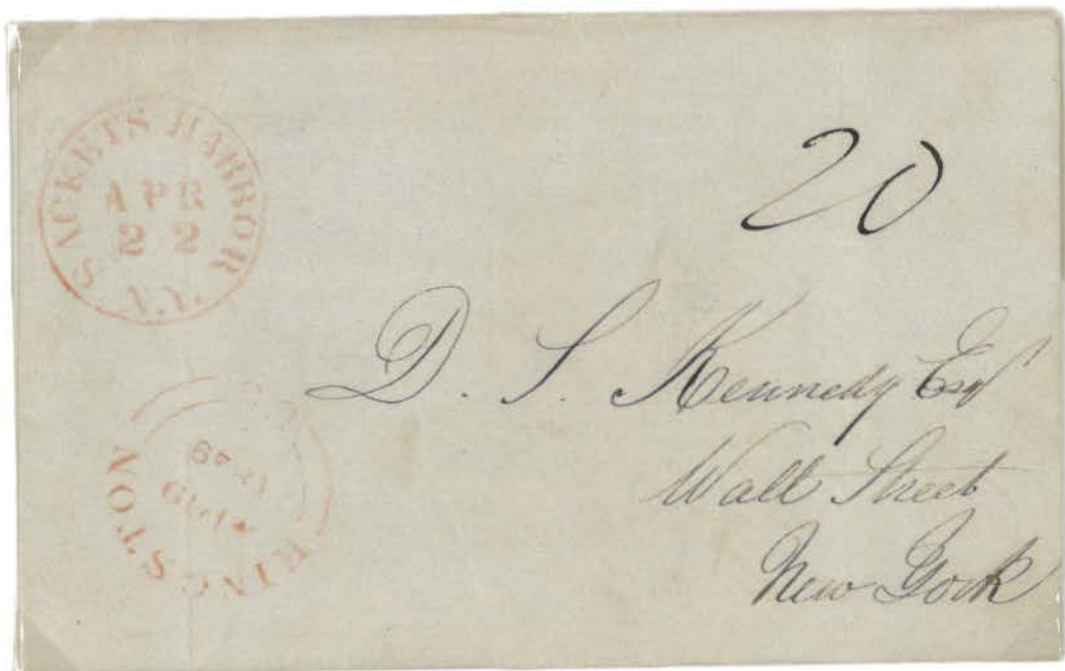 SACKETS HARBOR
APR
22
N.Y.
20
D. S. Kennedy Esqr
Wall Street
New York
KINGSTON